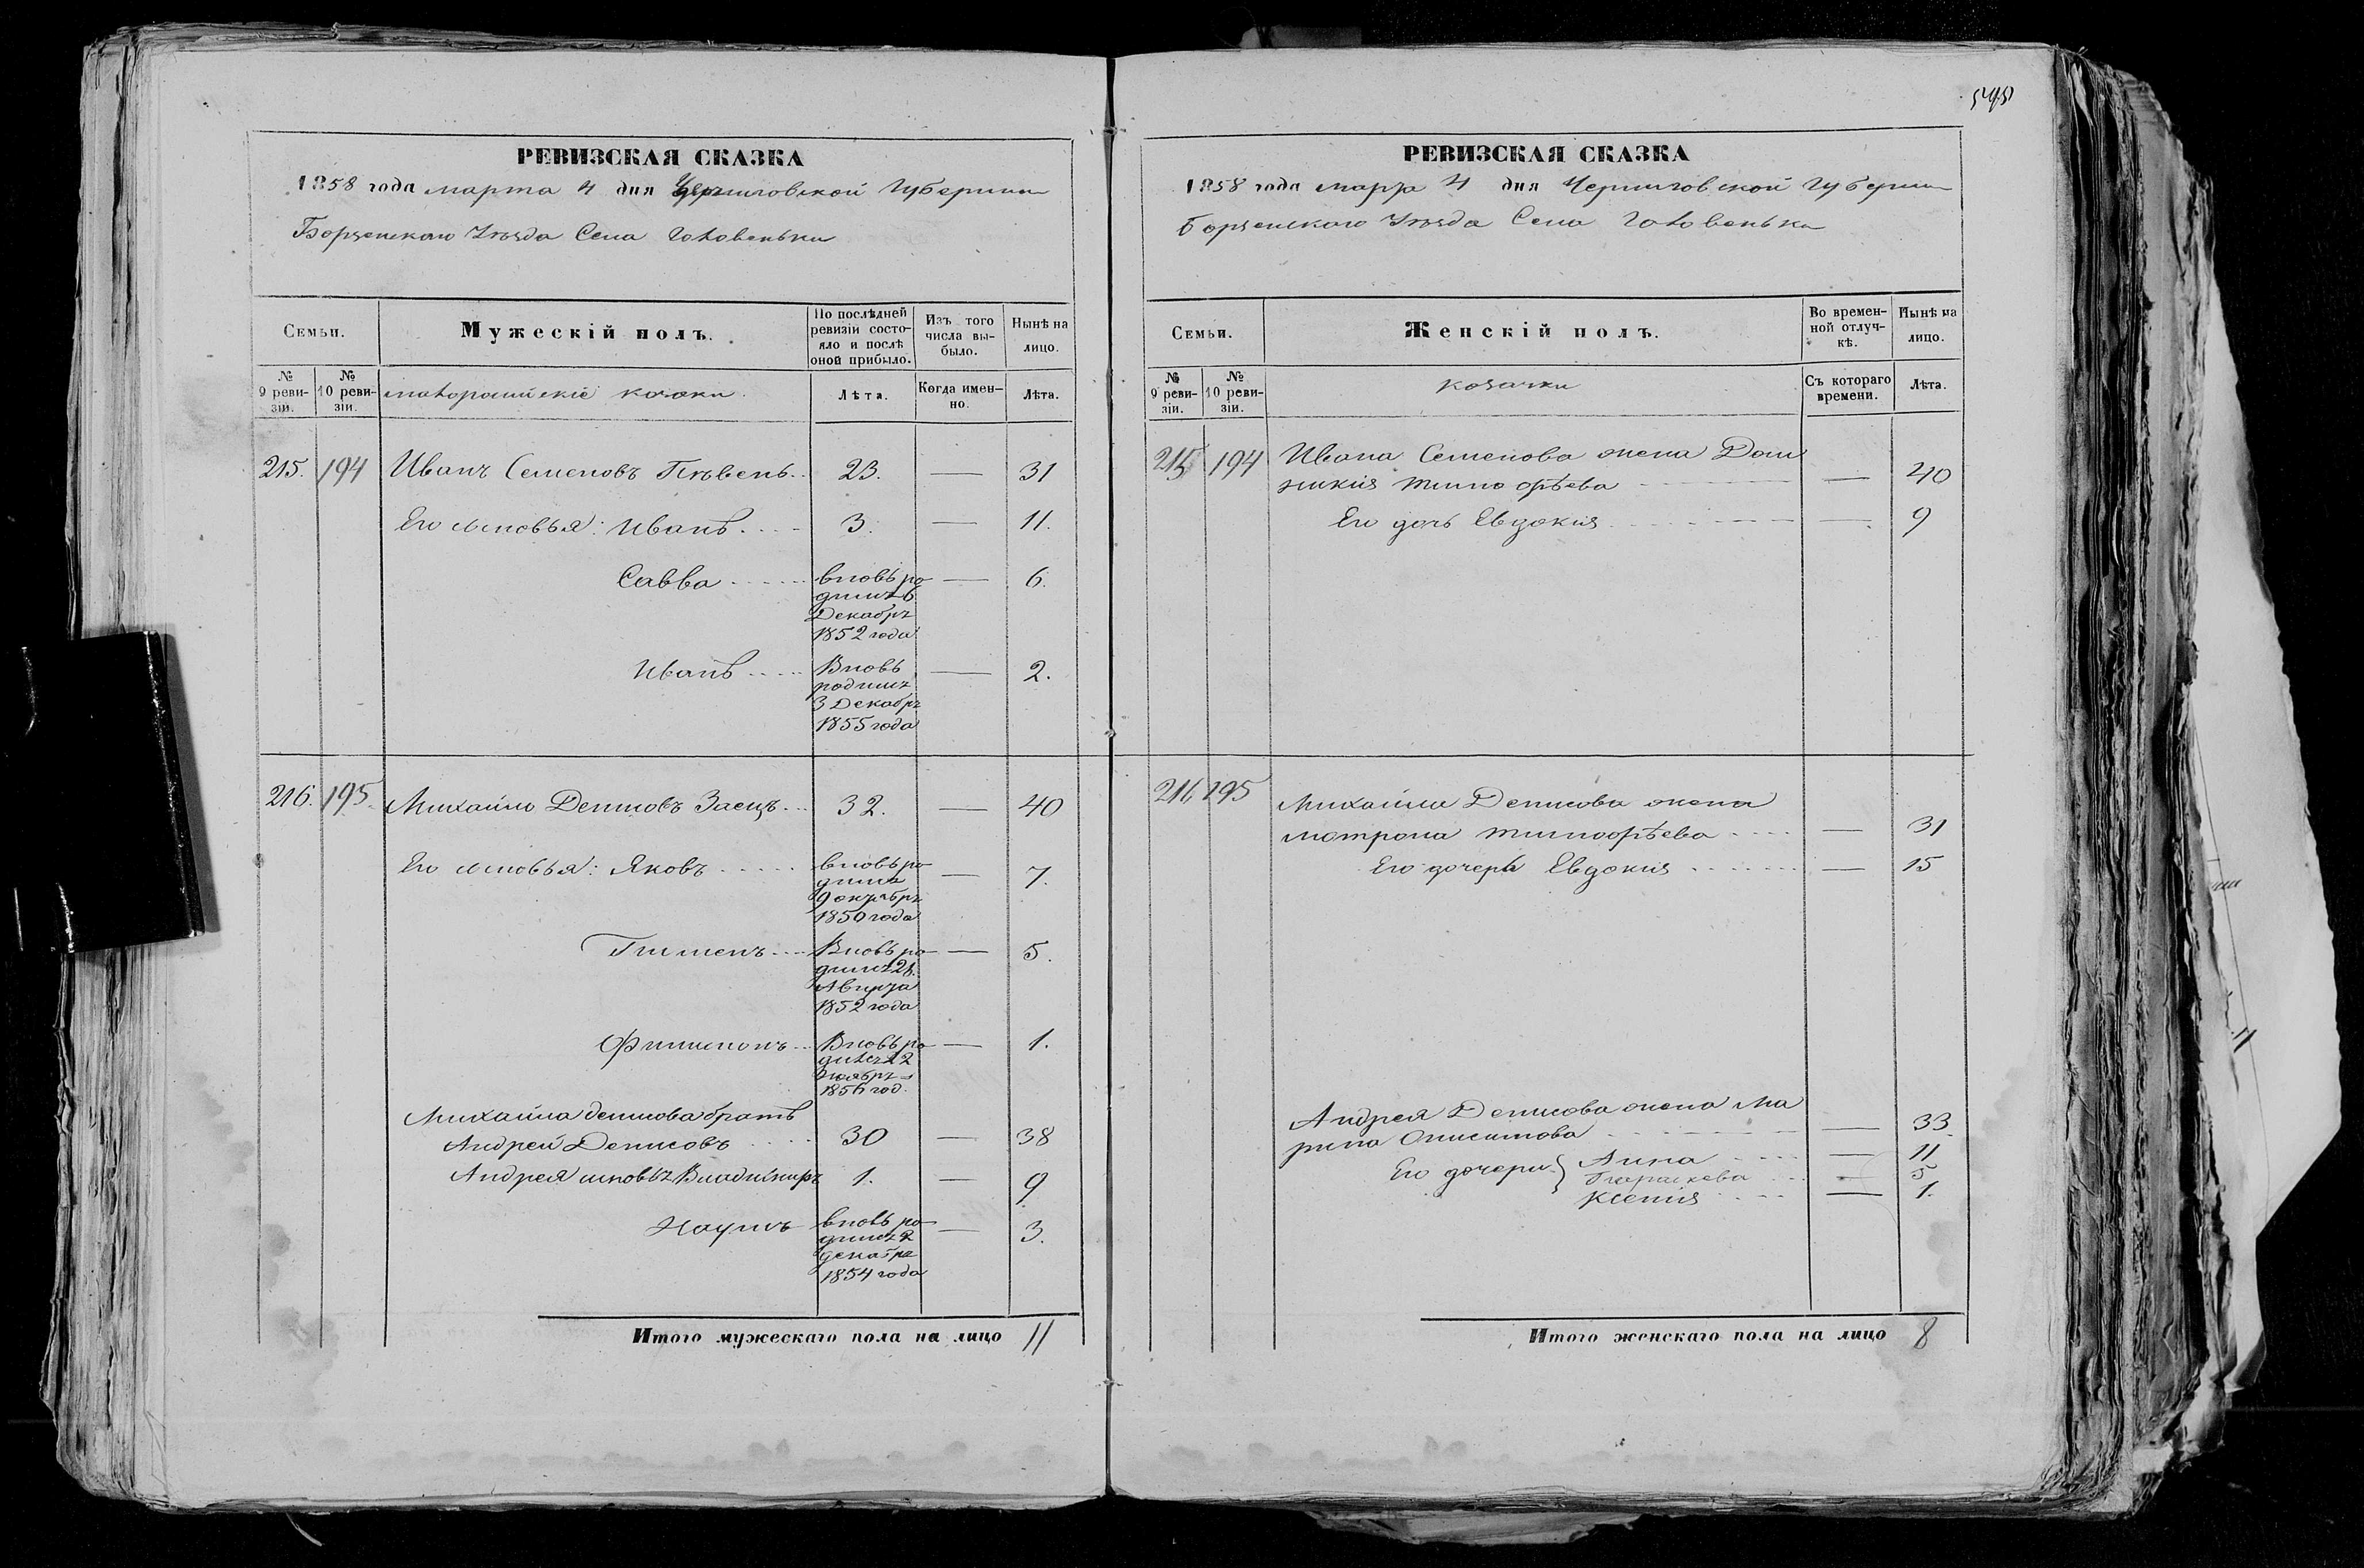 РЕВИЗСКАЯ СКАЗКА
1858 года марта 4 дня Черниговской Губернии
Борзенскаго Уѣзда Села Головеньки
Семьи.
Мужескій полъ.
По послѣдней ревизіи состояло и послѣ оной прибыло.
Изъ того числа выбыло.
Нынѣ на лицо.
№ 9 ревизіи.
№ 10 ревизіи.
малороссійскіе козаки
Лѣта.
Когда именно.
Лѣта.
215. 194 Иванъ Семеновъ Пѣвень 23. — 31
Его сыновья: Иванъ 3. — 11.
Савва вновь ро — 6.
дился 6
Декабря
1852 года
Иванъ Вновь — 2.
родился
3 Декабр
1855 года
216. 195. Михайло Денисовъ Заецъ 32. — 40
Его сыновья: Яковъ вновь ро — 7.
дился
9 октябр
1850 года
Пименъ Вновь ро — 5.
дился 28
Августа
1852 года
Филимонъ Вновь ро — 1.
дился 22
Ноябр
1856 год.
Михайла Денисова братъ
Андрей Денисовъ 30 — 38
Андрея сыновья Владимиръ 1. — 9
Наумъ вновь ро — 3.
дился 2
декабря
1854 года
Итого мужескаго пола на лицо 11
545
РЕВИЗСКАЯ СКАЗКА
1858 года марта 4 дня Черниговской Губернии
Борзенскаго Уѣзда Села Головеньки
Семьи.
Женскій полъ.
Во временной отлучкѣ.
Нынѣ на лицо.
№ 9 ревизіи.
№ 10 ревизіи.
козачки
Съ котораго времени.
Лѣта.
215 194 Ивана Семенова жена Дом
никия Тимофѣева — 40
Его дочь Евдокия — 9
216 195 Михайла Денисова жена
Мотрона Тимофѣева — 31
Его дочери Евдокия — 15
Андрея Денисова жена Ма
рина Онисимова — 33.
Его дочери Анна — 11
Параскева — 5
Ксения — 1.
Итого женскаго пола на лицо 8